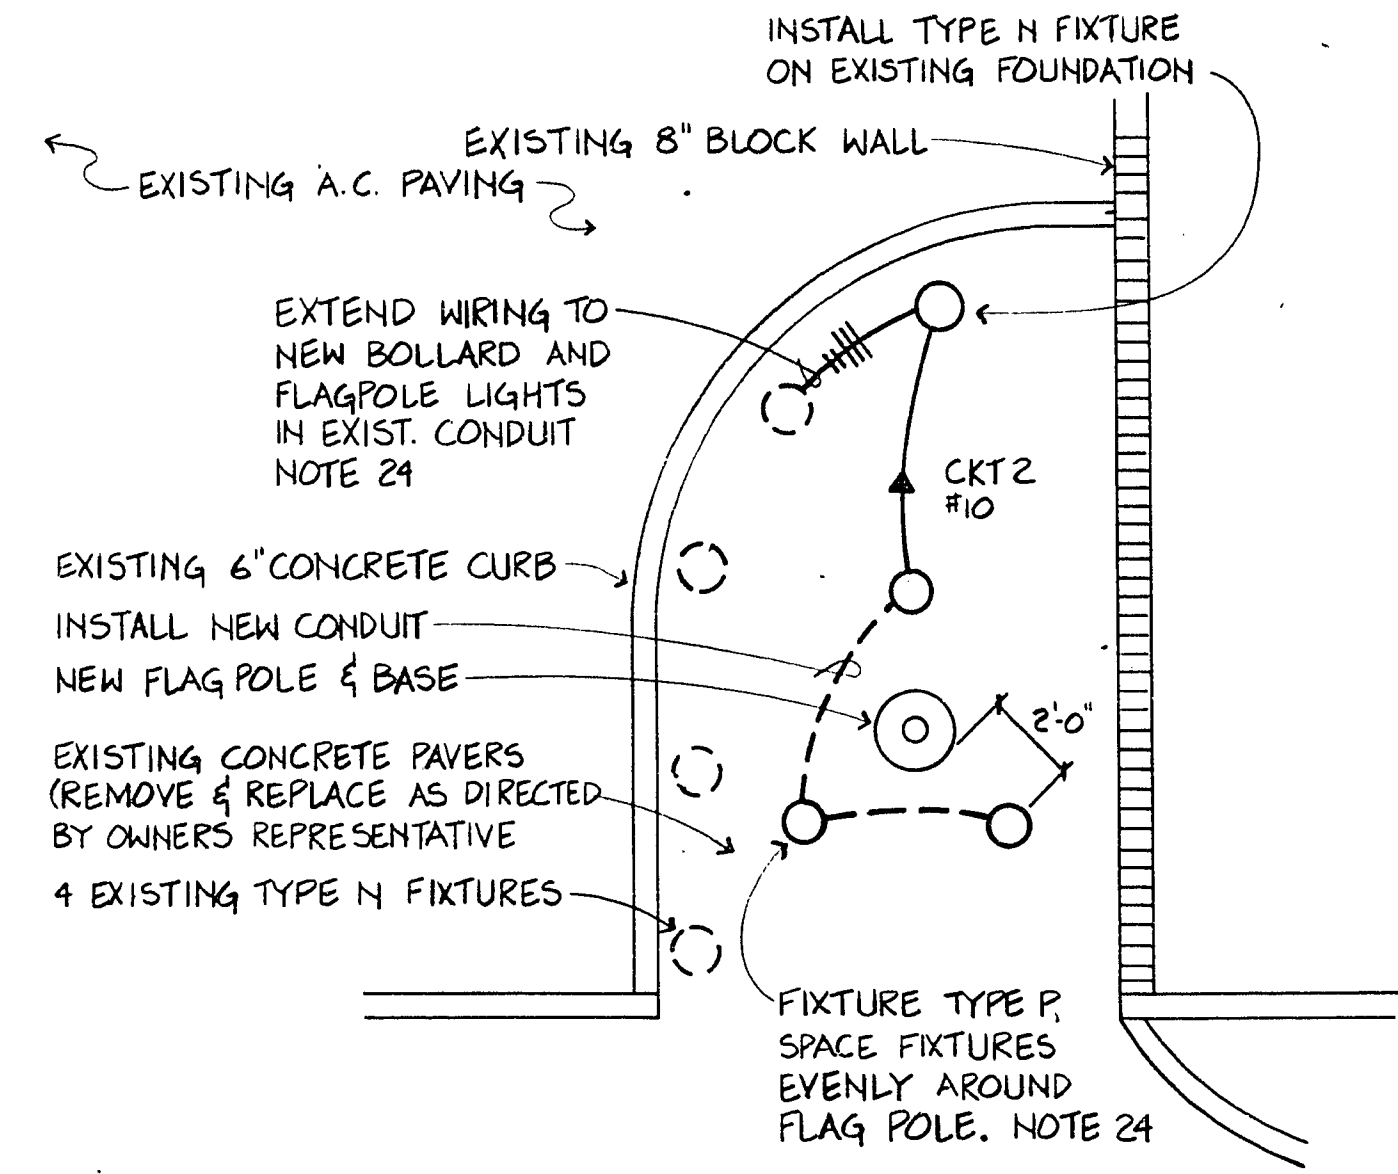 INSTALL TYPE N FIXTURE
ON EXISTING FOUNDATION
EXISTING 8" BLOCK WALL
EXISTING A.C. PAVING
EXTEND WIRING TO
NEW BOLLARD AND
FLAGPOLE LIGHTS
IN EXIST. CONDUIT
NOTE 24
CKT 2
#10
EXISTING 6" CONCRETE CURB
INSTALL NEW CONDUIT
NEW FLAG POLE & BASE
2'-0"
EXISTING CONCRETE PAVERS
(REMOVE & REPLACE AS DIRECTED
BY OWNERS REPRESENTATIVE
4 EXISTING TYPE N FIXTURES
FIXTURE TYPE P,
SPACE FIXTURES
EVENLY AROUND
FLAG POLE. NOTE 24